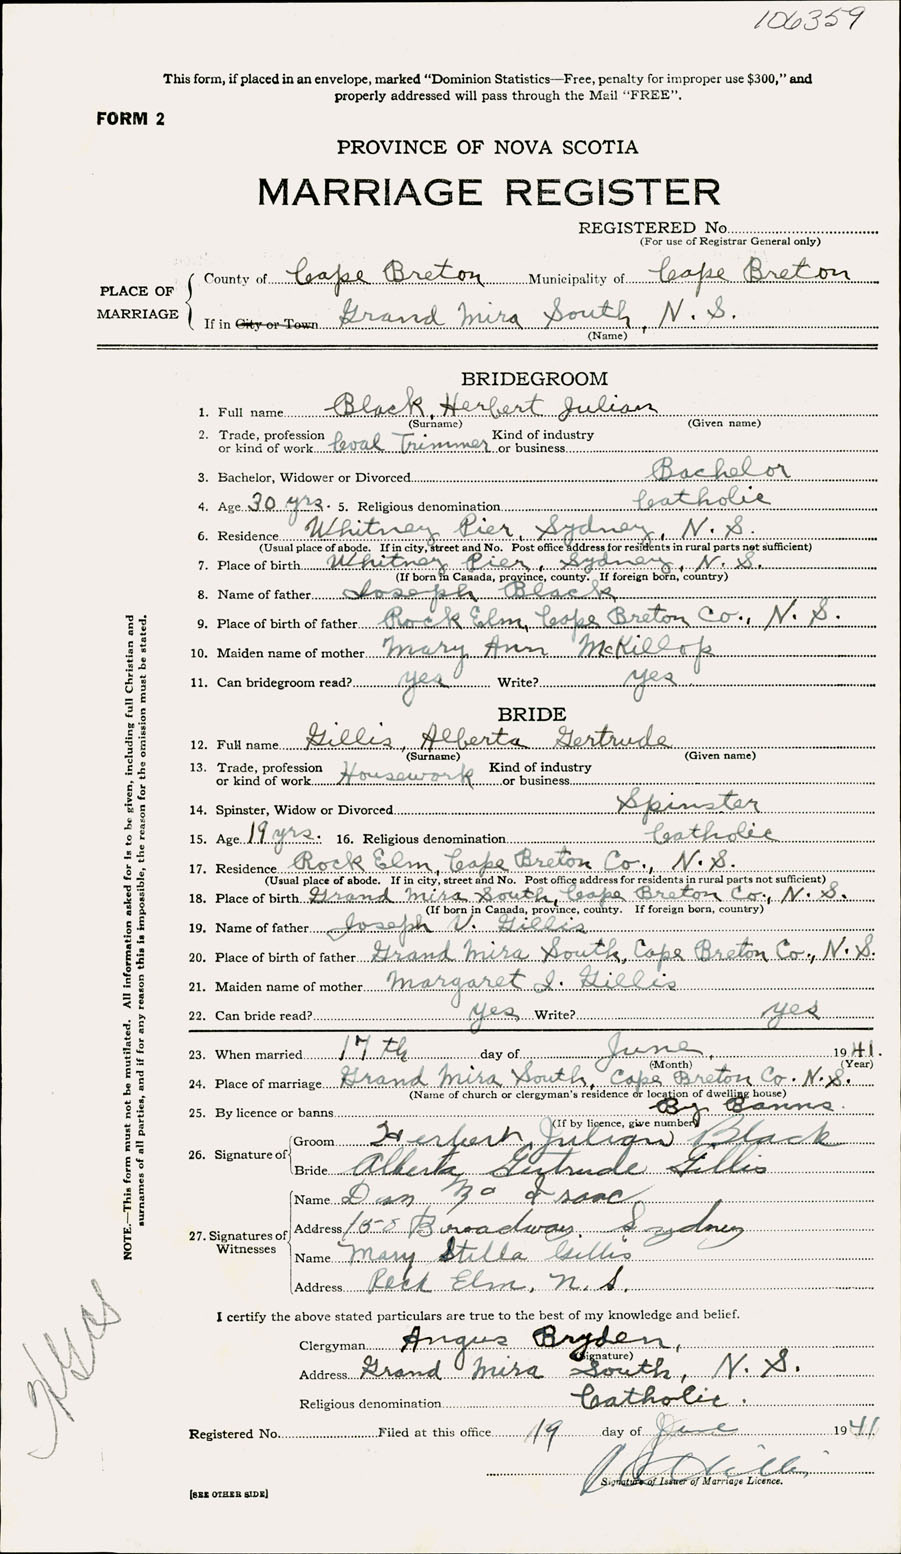 106359
This form, if placed in an envelope, marked “Dominion Statistics—Free, penalty for improper use $300,” and
properly addressed will pass through the Mail “FREE”.
FORM 2
PROVINCE OF NOVA SCOTIA
MARRIAGE REGISTER
REGISTERED No.
(For use of Registrar General only)
PLACE OF MARRIAGE
County of Cape Breton Municipality of Cape Breton
If in City or Town Grand Mira South, N. S.
(Name)
BRIDEGROOM
1. Full name Black, Herbert Julian
(Surname) (Given name)
2. Trade, profession or kind of work Coal Trimmer Kind of industry or business
3. Bachelor, Widower or Divorced Bachelor
4. Age 30 yrs. 5. Religious denomination Catholic
6. Residence Whitney Pier, Sydney, N. S.
(Usual place of abode. If in city, street and No. Post office address for residents in rural parts not sufficient)
7. Place of birth Whitney Pier, Sydney, N. S.
(If born in Canada, province, county. If foreign born, country)
8. Name of father Joseph Black
9. Place of birth of father Rock Elm, Cape Breton Co., N. S.
10. Maiden name of mother Mary Ann McKillop
11. Can bridegroom read? yes Write? yes
BRIDE
12. Full name Gillis, Alberta Gertrude
(Surname) (Given name)
13. Trade, profession or kind of work Housework Kind of industry or business
14. Spinster, Widow or Divorced Spinster
15. Age 19 yrs. 16. Religious denomination Catholic
17. Residence Rock Elm, Cape Breton Co., N. S.
(Usual place of abode. If in city, street and No. Post office address for residents in rural parts not sufficient)
18. Place of birth Grand Mira South, Cape Breton Co., N. S.
(If born in Canada, province, county. If foreign born, country)
19. Name of father Joseph V. Gillis
20. Place of birth of father Grand Mira South, Cape Breton Co., N. S.
21. Maiden name of mother Margaret J. Gillis
22. Can bride read? yes Write? yes
23. When married 17th day of June, 1941.
(Month) (Year)
24. Place of marriage Grand Mira South, Cape Breton Co. N. S.
(Name of church or clergyman's residence or location of dwelling house)
25. By licence or banns By Banns.
(If by licence, give number)
26. Signature of
Groom Herbert Julian Black
Bride Alberta Gertrude Gillis
27. Signatures of Witnesses
Name Dan Isaac
Address Broadway, Sydney
Name Mary Stella Gillis
Address Rock Elm, N. S.
I certify the above stated particulars are true to the best of my knowledge and belief.
Clergyman Angus Bryden,
(Signature)
Address Grand Mira South, N. S.
Religious denomination Catholic.
Registered No. Filed at this office 19 day of June 1941
Gillis
Signature of Issuer of Marriage Licence.
[SEE OTHER SIDE]
NOTE.—This form must not be mutilated. All information asked for is to be given, including full Christian and
surnames of all parties, and if for any reason this is impossible, the reason for the omission must be stated.